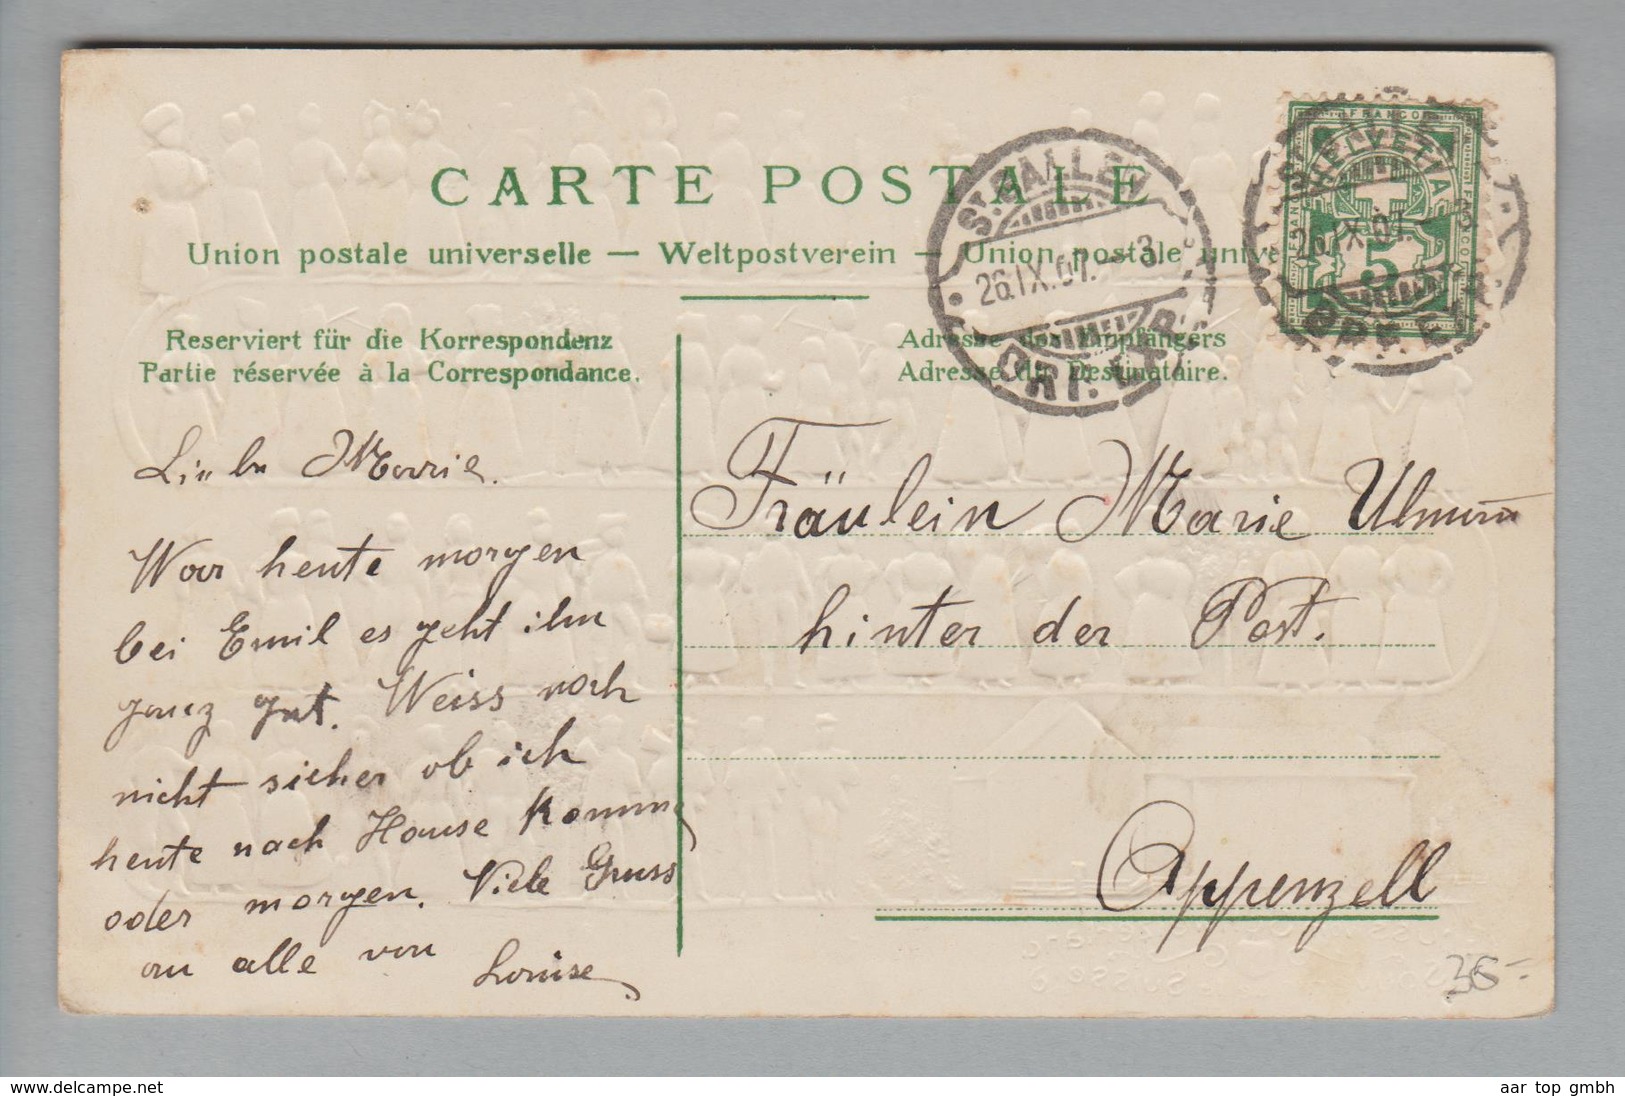 CARTE POSTALE
Union postale universelle — Weltpostverein — Union postale unive
Reserviert für die Korrespondenz
Partie réservée à la Correspondance.
Adresse des Empfängers
Adresse du Destinataire.
ST. GALLEN
26.IX.07. - 3
BRF. EXP.
FRANCO
HELVETIA
5
26.IX.07.
BRF. EXP.
Liebe Marie.
War heute morgen
bei Emil es geht ihm
ganz gut. Weiss noch
nicht sicher ob ich
heute nach Hause komme
oder morgen. Viele Gruss
an alle von
Louise
Fräulein Marie
hinter der Post.
Appenzell
36-
delcampe.net
aar top gmbh